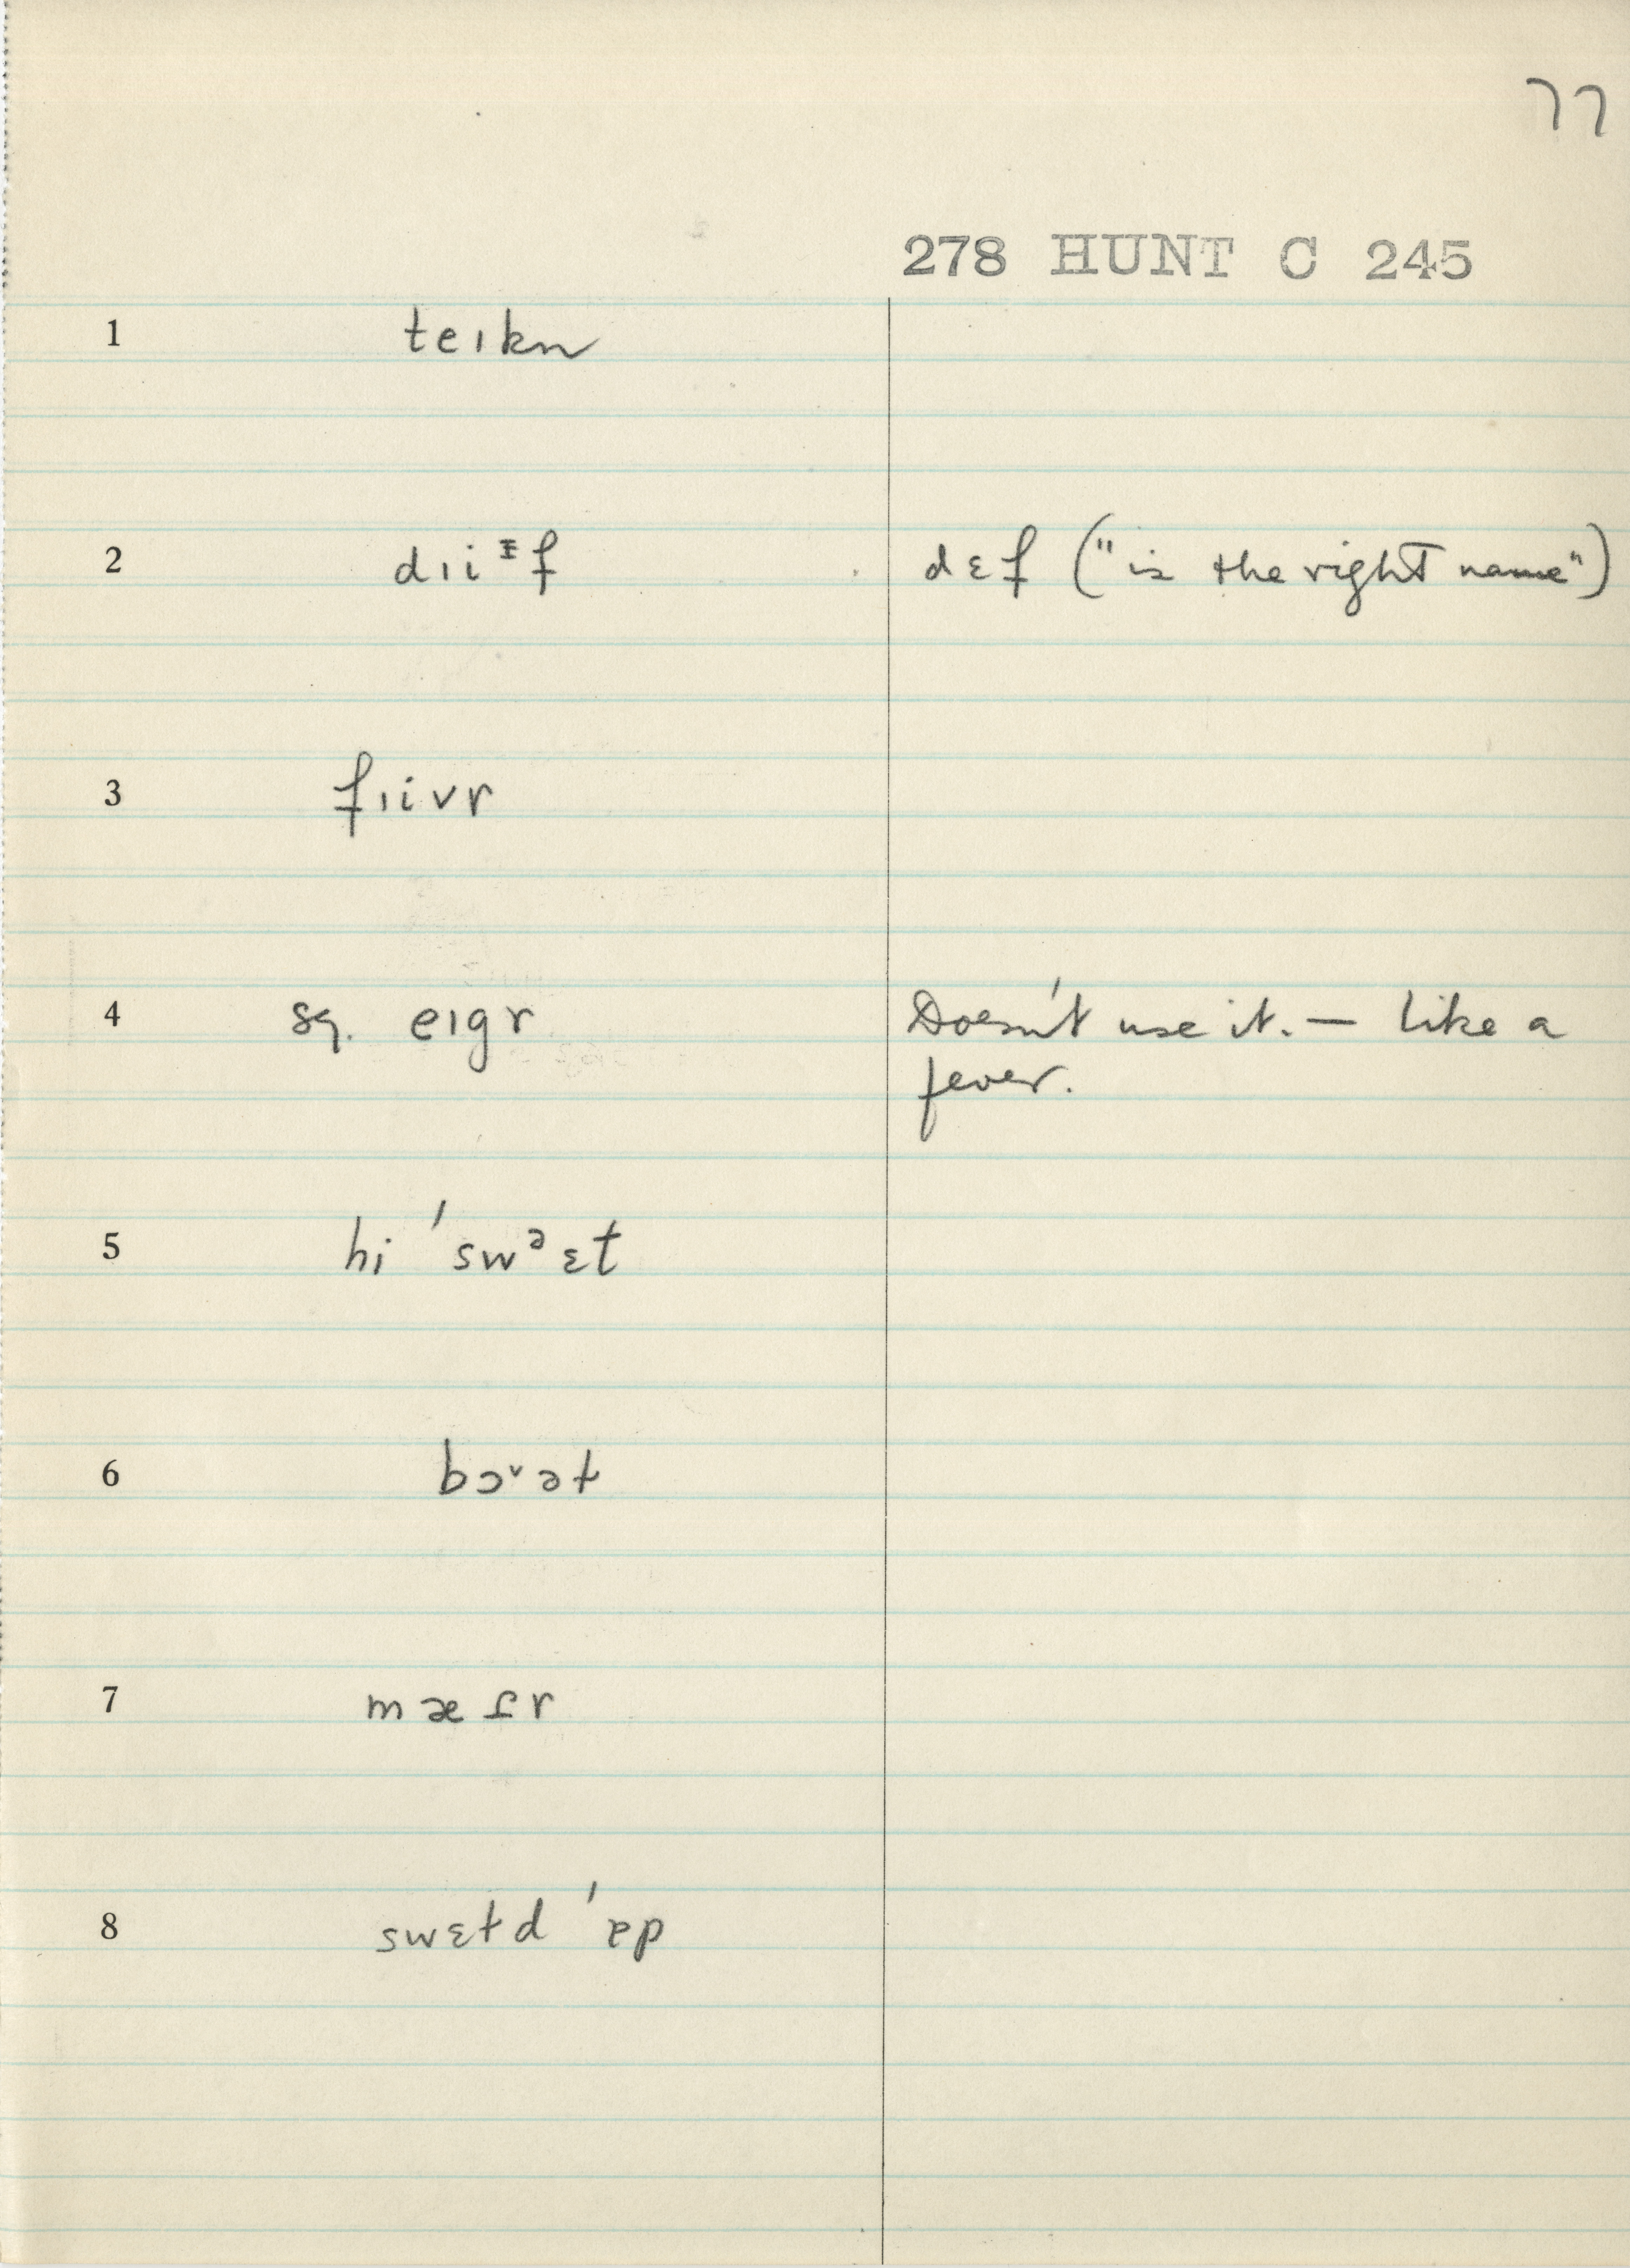 77
278 HUNT C 245
1 teıkn
2 dıiᶤf dɛf ("is the right name")
3 fıivr
4 sq. eıgr Doesn't use it. — like a
fever.
5 hi ˈswᵊɛt
6 bɔˇət
7 mætr
8 swɛtd ˈɐp